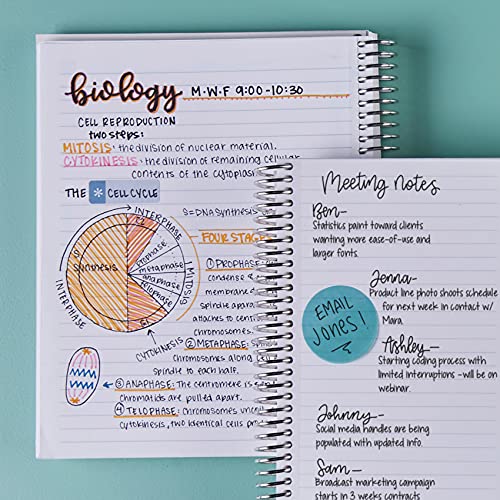 biology M·W·F 9:00-10:30
CELL REPRODUCTION
two steps:
MITOSIS: the division of nuclear material.
CYTOKINESIS: the division of remaining cellular
contents of the cytoplas
THE * CELL CYCLE
S=DNA synthesis
INTERPHASE
FOUR STAG
Synthesis
prophase
metaphase
anaphase
telophase
MITOSIS
INTERPHASE
CYTOKINESIS
① PROPHASE:
condense &
membrane
spindle appara
attaches to centr
chromosomes.
② METAPHASE: Spin
chromosomes along
spindle to each half.
③ ANAPHASE: The centromere is
chromatids are pulled apart.
④ TELOPHASE: Chromosomes uncoi
cytokinesis, two identical cells pr
Meeting notes
Ben—
Statistics point toward clients
wanting more ease-of-use and
larger fonts.
Jenna—
Product line photo shoots schedule
for next week in contact w/
Mara.
EMAIL
Jones!
Ashley—
Starting coding process with
limited interruptions -will be on
webinar.
Johnny—
Social media handles are being
populated with updated info.
Sam—
Broadcast marketing campaign
starts in 3 weeks contracts